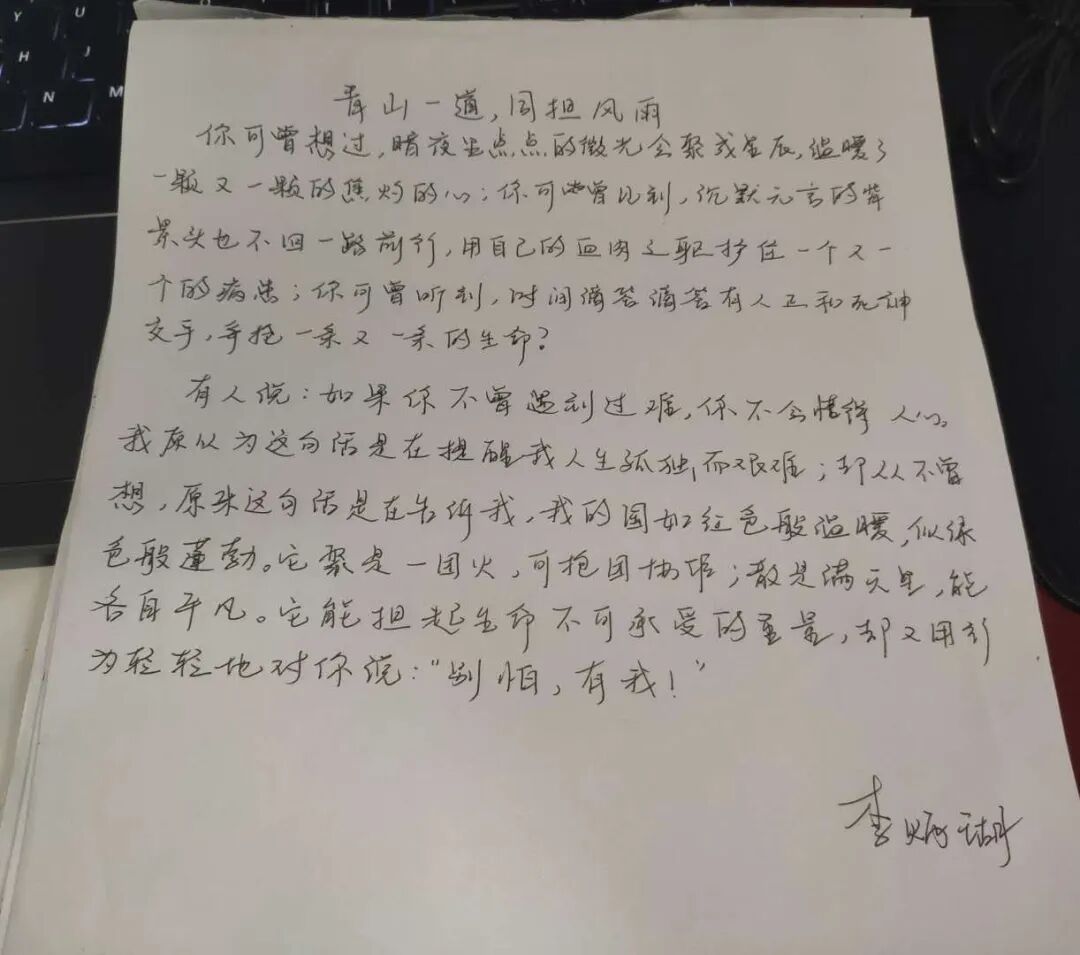 青山一道，同担风雨
你可曾想过，暗夜里点点的微光会聚成星辰，温暖了
一颗又一颗的焦灼的心；你可曾见到，沉默无言的背
景头也不回一路前行，用自己的血肉之躯护住一个又一
个的病患；你可曾听到，时间滴答滴答有人正和死神
交手，争抢一条又一条的生命？
有人说：如果你不曾遇到过难，你不会懂得人心。
我原以为这句话是在提醒我人生孤独而艰难；却从不曾
想，原来这句话是在告诉我，我的国如红色般温暖，似绿
色般蓬勃。它聚是一团火，可抱团协作；散是满天星，能
各自平凡。它能担起生命不可承受的重量，却又用行
为轻轻地对你说："别怕，有我！"
李炳瑚
N
H
J
M